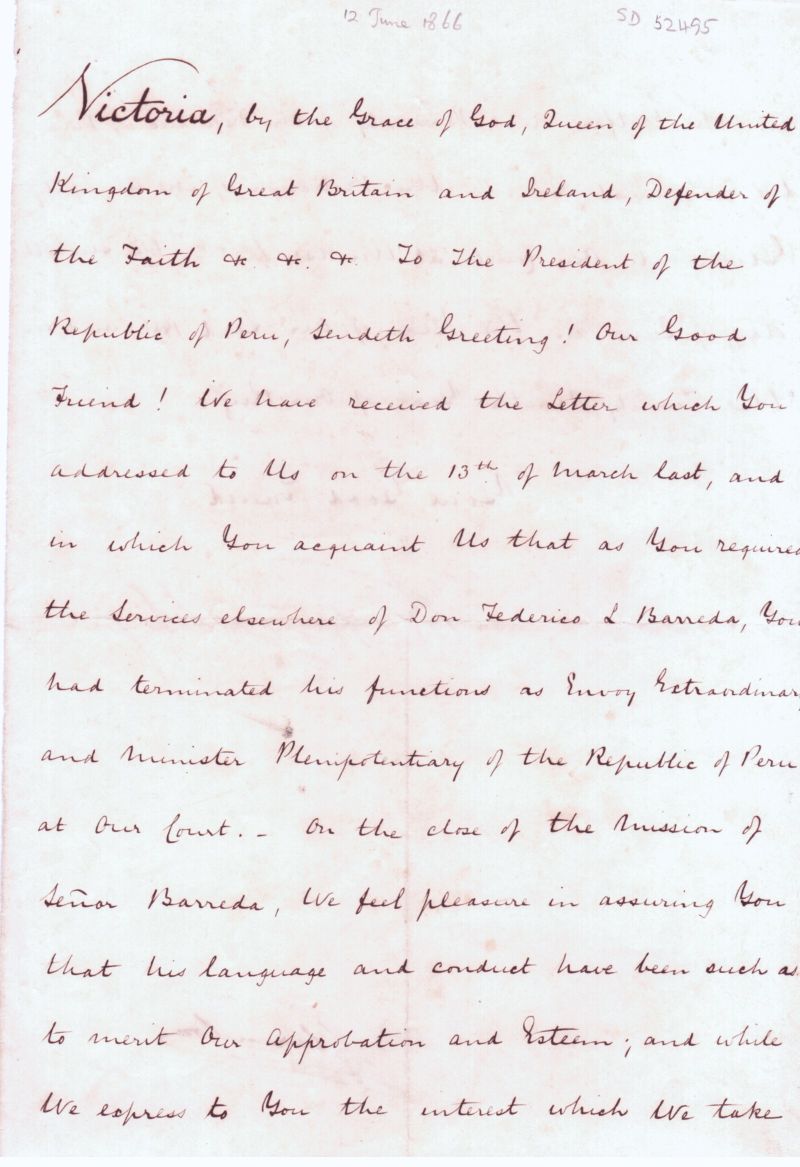 12 June 1866
SD 52495
Victoria, by the Grace of God, Queen of the United
Kingdom of Great Britain and Ireland, Defender of
the Faith &c. &c. &c. To The President of the
Republic of Peru, Sendeth Greeting! Our Good
Friend! We have received the Letter which You
addressed to Us on the 13th of March last, and
in which You acquaint Us that as You required
the Services elsewhere of Don Federico L Barreda, You
had terminated his functions as Envoy Extraordinary
and Minister Plenipotentiary of the Republic of Peru
at Our Court. - On the close of the Mission of
Señor Barreda, We feel pleasure in assuring You
that his language and conduct have been such as
to merit Our Approbation and Esteem; and while
We express to You the interest which We take